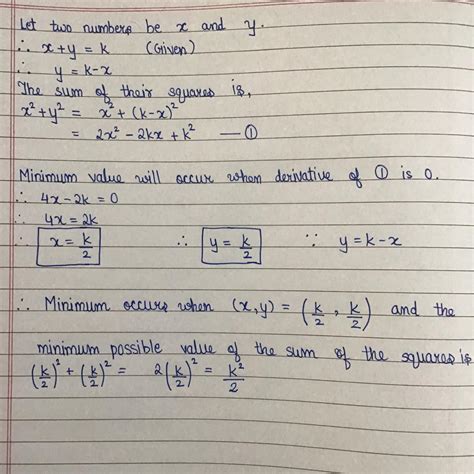 Let two numbers be x and y.
∴ x+y = k (Given)
∴ y = k-x
The sum of their squares is,
x² + y² = x² + (k-x)²
= 2x² - 2kx + k² —①
Minimum value will occur when derivative of ① is 0.
∴ 4x - 2k = 0
∴ 4x = 2k
∴ x = k/2 ∴ y = k/2 ∵ y = k-x
∴ Minimum occurs when (x,y) = (k/2, k/2) and the
minimum possible value of the sum of the squares is
(k/2)² + (k/2)² = 2(k/2)² = k²/2